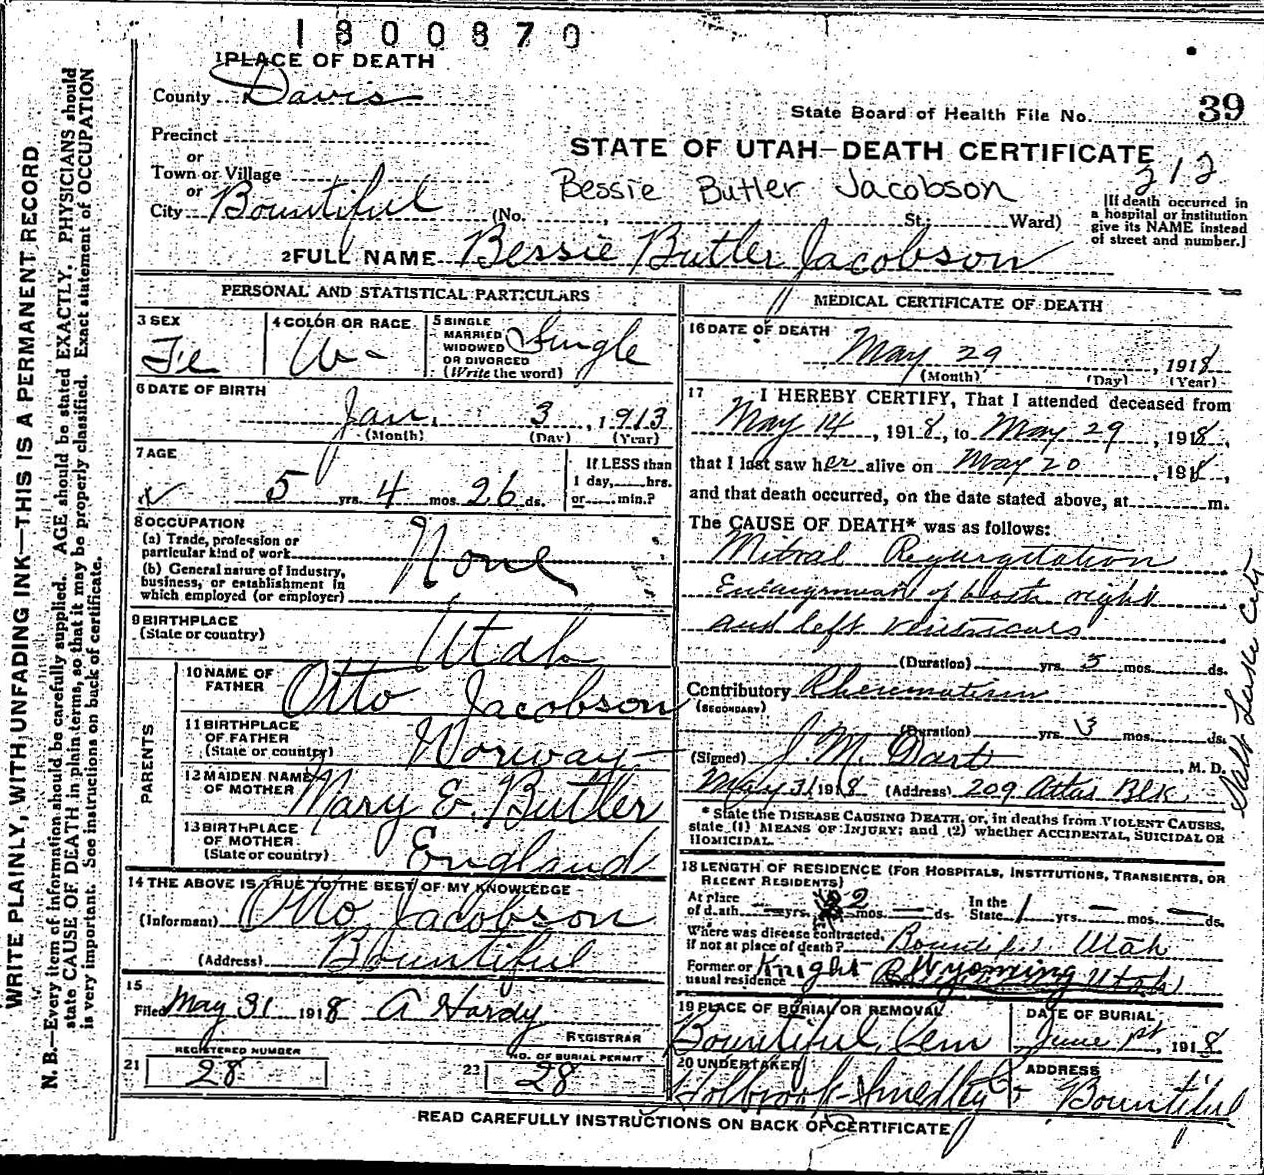 1300870
1 PLACE OF DEATH
County Davis
State Board of Health File No. 39
Precinct
or
STATE OF UTAH—DEATH CERTIFICATE
212
Town or Village
or
Bessie Butler Jacobson
City Bountiful (No. , St.; Ward)
[If death occurred in
a hospital or institution
give its NAME instead
of street and number.]
2 FULL NAME Bessie Butler Jacobson
PERSONAL AND STATISTICAL PARTICULARS
3 SEX
Fe
4 COLOR OR RACE
W
5 SINGLE
MARRIED
WIDOWED
OR DIVORCED
(Write the word)
Single
6 DATE OF BIRTH
Jan. 3, 1913
(Month) (Day) (Year)
7 AGE
5 yrs. 4 mos. 26 ds.
If LESS than
1 day, hrs.
or min.?
8 OCCUPATION
(a) Trade, profession or
particular kind of work
(b) General nature of industry,
business, or establishment in
which employed (or employer)
None
9 BIRTHPLACE
(State or country)
Utah
PARENTS
10 NAME OF
FATHER
Otto Jacobson
11 BIRTHPLACE
OF FATHER
(State or country)
Norway
12 MAIDEN NAME
OF MOTHER
Mary E. Butler
13 BIRTHPLACE
OF MOTHER
(State or country)
England
14 THE ABOVE IS TRUE TO THE BEST OF MY KNOWLEDGE
(Informant) Otto Jacobson
(Address) Bountiful
15
Filed May 31 1918 A Hardy
REGISTRAR
21 REGISTERED NUMBER
28
22 NO. OF BURIAL PERMIT
28
MEDICAL CERTIFICATE OF DEATH
16 DATE OF DEATH
May 29, 1918
(Month) (Day) (Year)
17 I HEREBY CERTIFY, That I attended deceased from
May 14, 1918, to May 29, 1918,
that I last saw her alive on May 20, 1918,
and that death occurred, on the date stated above, at m.
The CAUSE OF DEATH* was as follows:
Mitral Regurgitation
of both right
and left
(Duration) yrs. 5 mos. ds.
Contributory Rheumatism
(SECONDARY)
(Duration) yrs. 3 mos. ds.
(Signed) J. M. Dart, M. D.
May 31 1918 (Address) 209 Atlas Blk
Salt Lake City
* State the DISEASE CAUSING DEATH, or, in deaths from VIOLENT CAUSES,
state (1) MEANS OF INJURY; and (2) whether ACCIDENTAL, SUICIDAL OR
HOMICIDAL.
18 LENGTH OF RESIDENCE (FOR HOSPITALS, INSTITUTIONS, TRANSIENTS, OR
RECENT RESIDENTS)
At place
of death yrs. 2 mos. ds.
In the
State 1 yrs. mos. ds.
Where was disease contracted,
if not at place of death? Bountiful Utah
Former or
usual residence Knight Wyoming Utah
19 PLACE OF BURIAL OR REMOVAL
Bountiful Cem
DATE OF BURIAL
June 1st, 1918
20 UNDERTAKER
Holbrook-Smedley Co
ADDRESS
Bountiful
READ CAREFULLY INSTRUCTIONS ON BACK OF CERTIFICATE
WRITE PLAINLY, WITH UNFADING INK—THIS IS A PERMANENT RECORD
N. B.—Every item of information should be carefully supplied. AGE should be stated EXACTLY. PHYSICIANS should
state CAUSE OF DEATH in plain terms, so that it may be properly classified. Exact statement of OCCUPATION
is very important. See instructions on back of certificate.